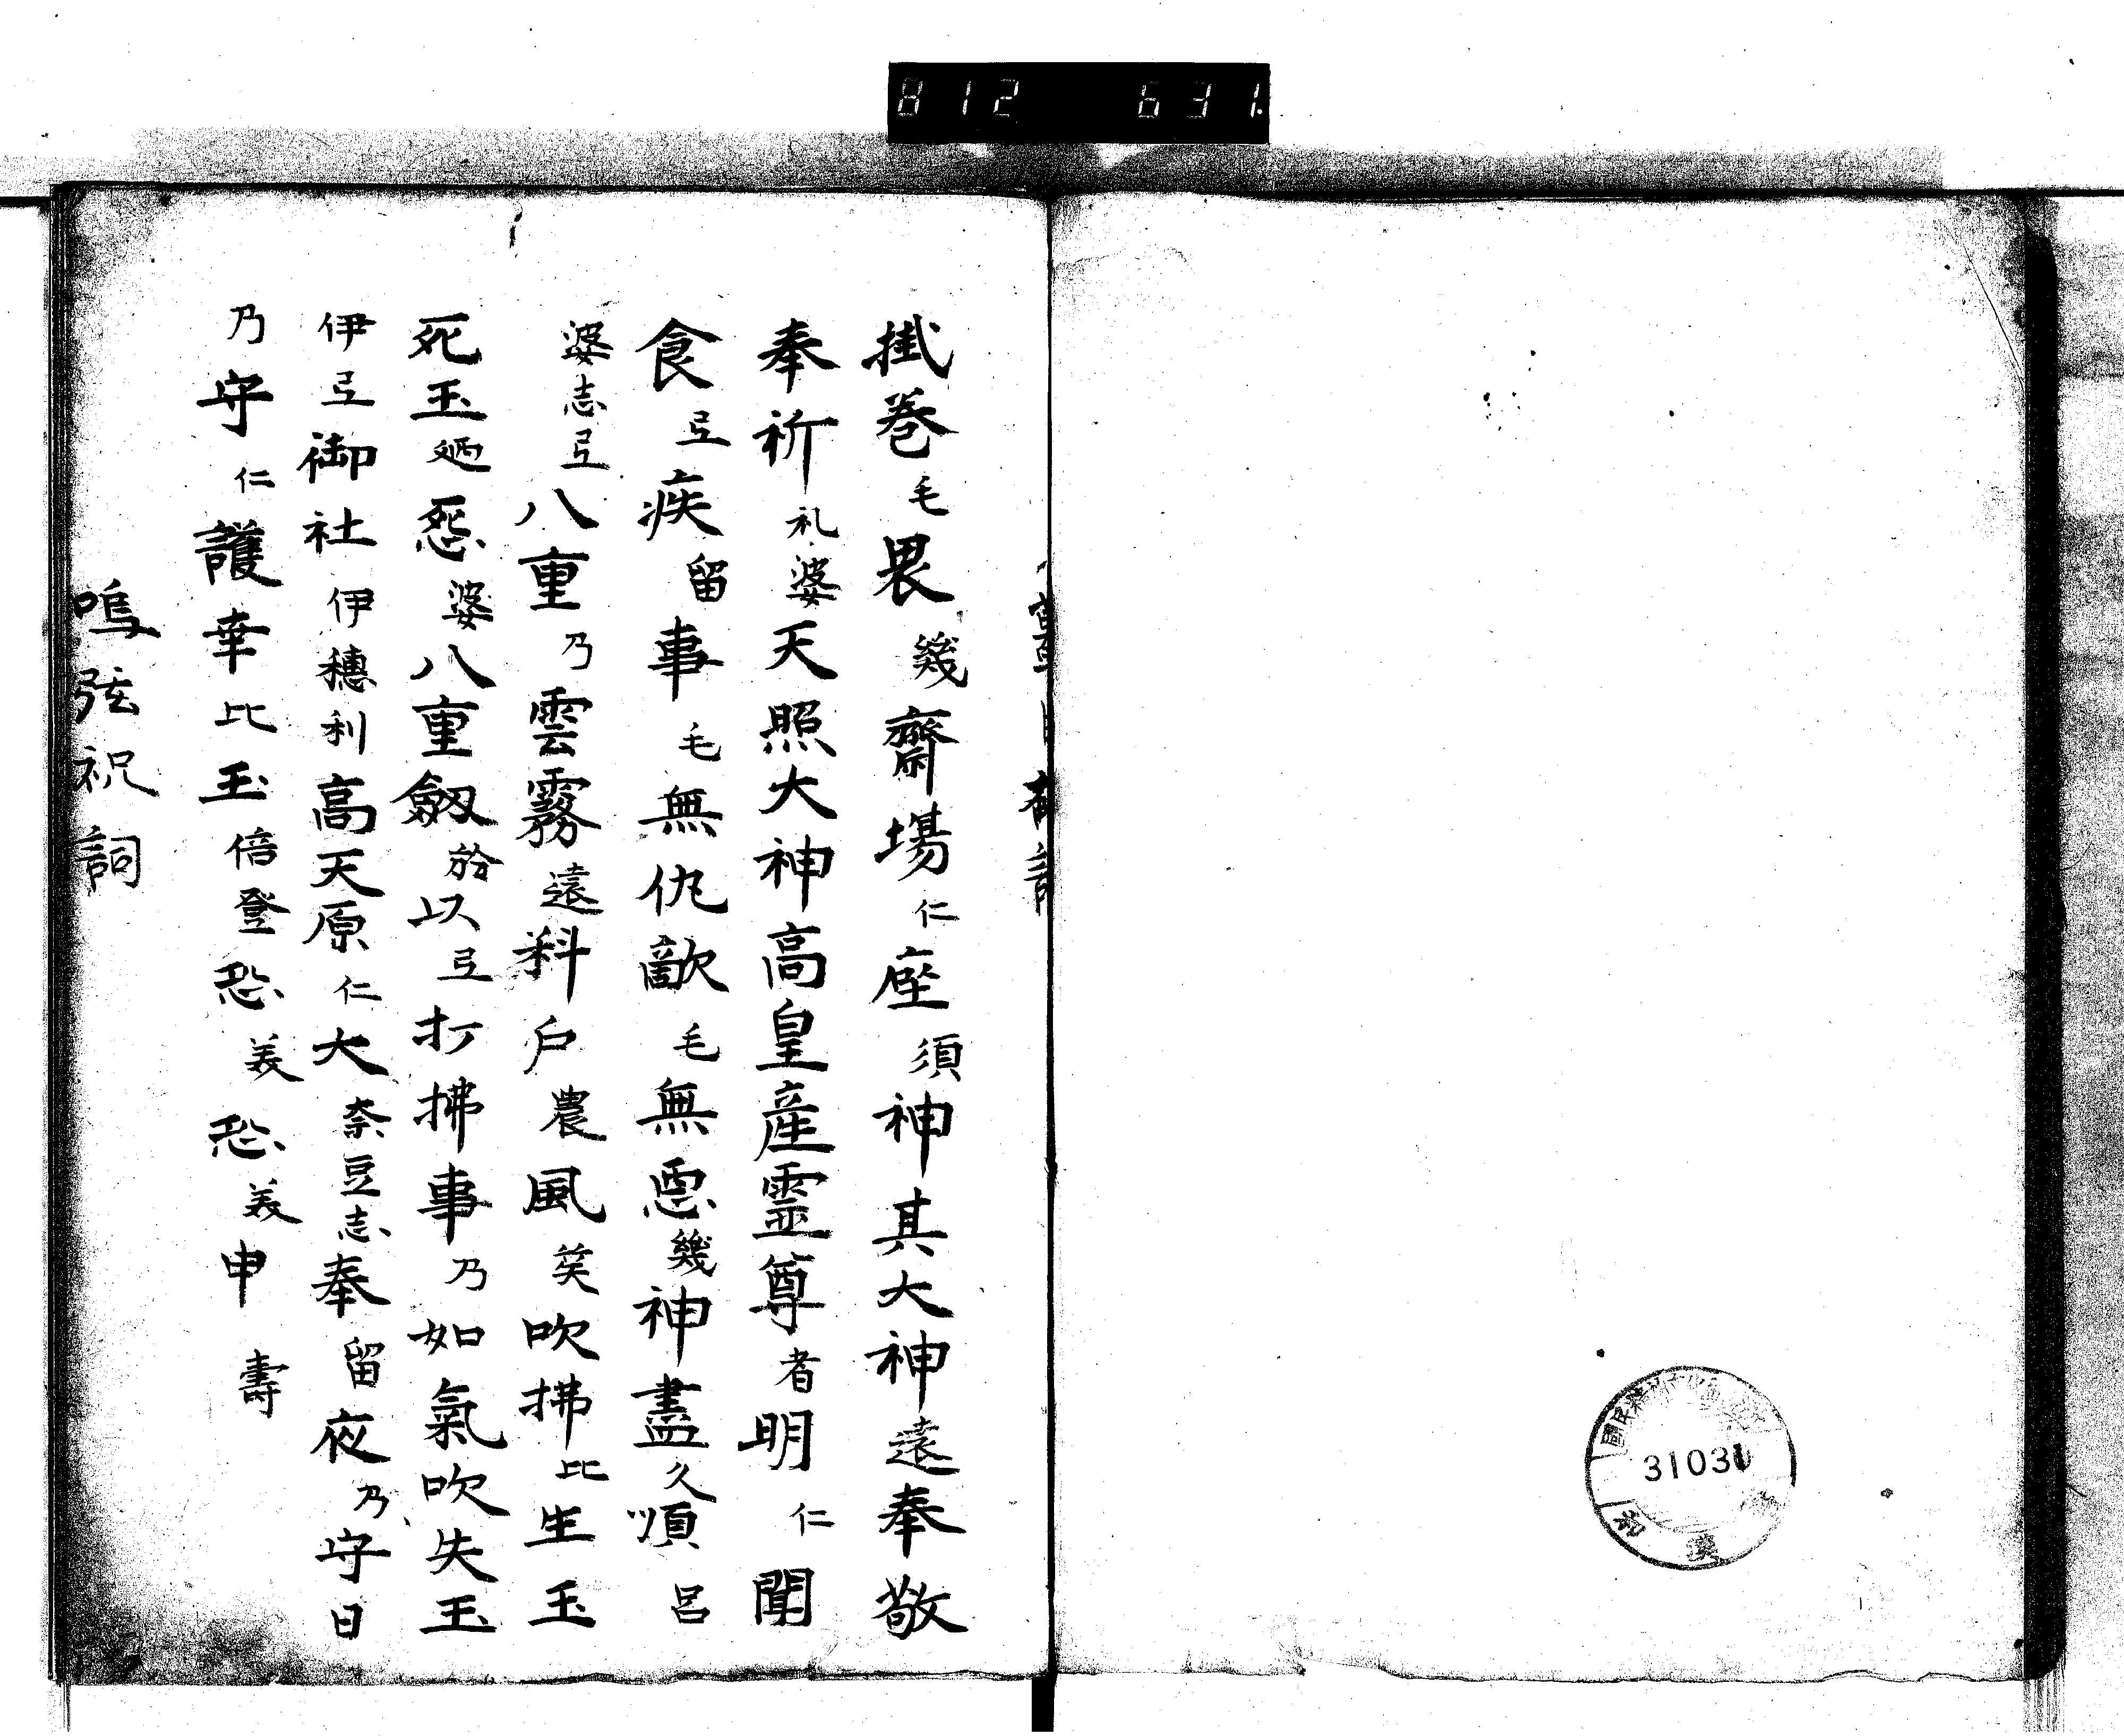 812 631.
掛巻毛畏幾齋場仁座須神其大神遠奉敬
奉祈礼婆天照大神高皇産霊尊者明仁聞
食弖疾留事毛無仇敵毛無悪幾神盡久順呂
婆志弖八重乃雲霧遠科戸農風笶吹拂比生玉
死玉廼怨婆八重劔於以弖打拂事乃如氣吹失玉
伊弖御社伊穗利高天原仁大奈豆志奉留夜乃守日
乃守仁護幸比玉倍登恐美恐美申壽
鳴弦祝詞
31031